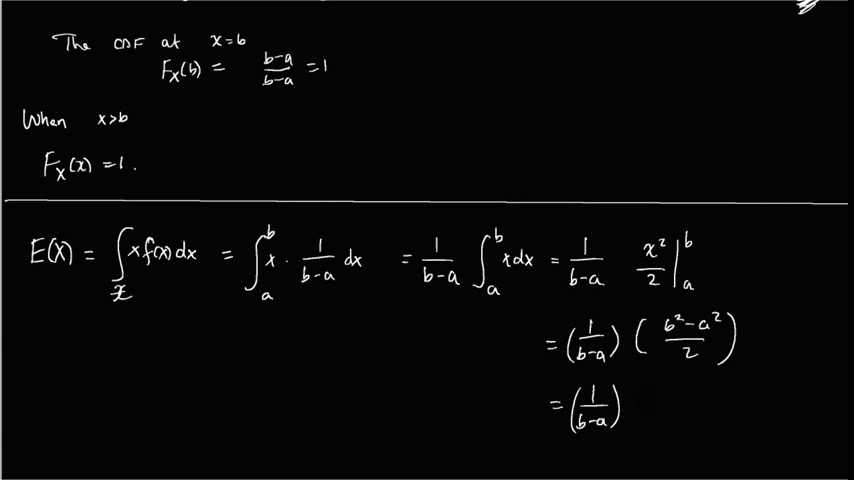 The CDF at x=b
F_X(b) = \frac{b-a}{b-a} = 1
When x>b
F_X(x) = 1.
E(X) = \int_{\mathcal{X}} x f(x) dx = \int_a^b x \cdot \frac{1}{b-a} dx = \frac{1}{b-a} \int_a^b x dx = \frac{1}{b-a} \frac{x^2}{2} \Big|_a^b
= \left( \frac{1}{b-a} \right) \left( \frac{b^2-a^2}{2} \right)
= \left( \frac{1}{b-a} \right)